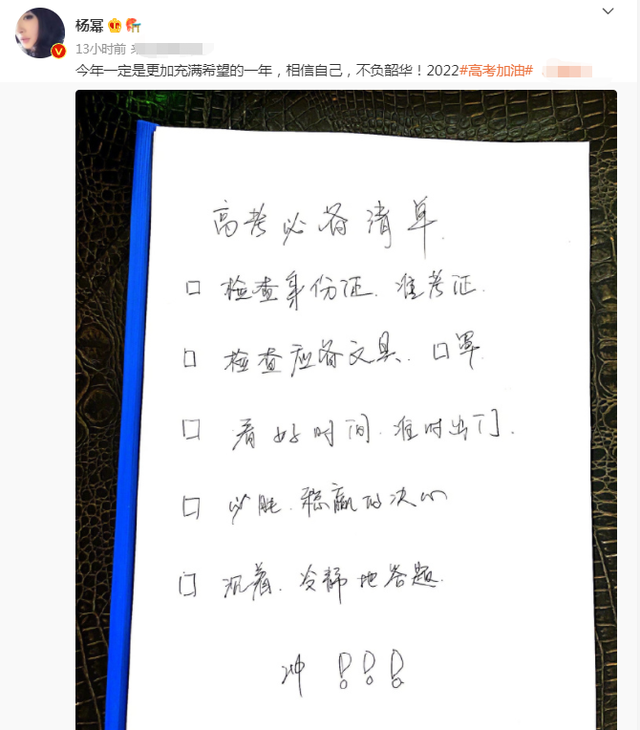 杨幂
13小时前 来
今年一定是更加充满希望的一年，相信自己，不负韶华！2022#高考加油#
高考必备清单.
□ 检查身份证、准考证.
□ 检查应备文具、口罩.
□ 看好时间、准时出门.
□ 必胜、稳赢的决心
□ 沉着、冷静地答题.
冲 !!!